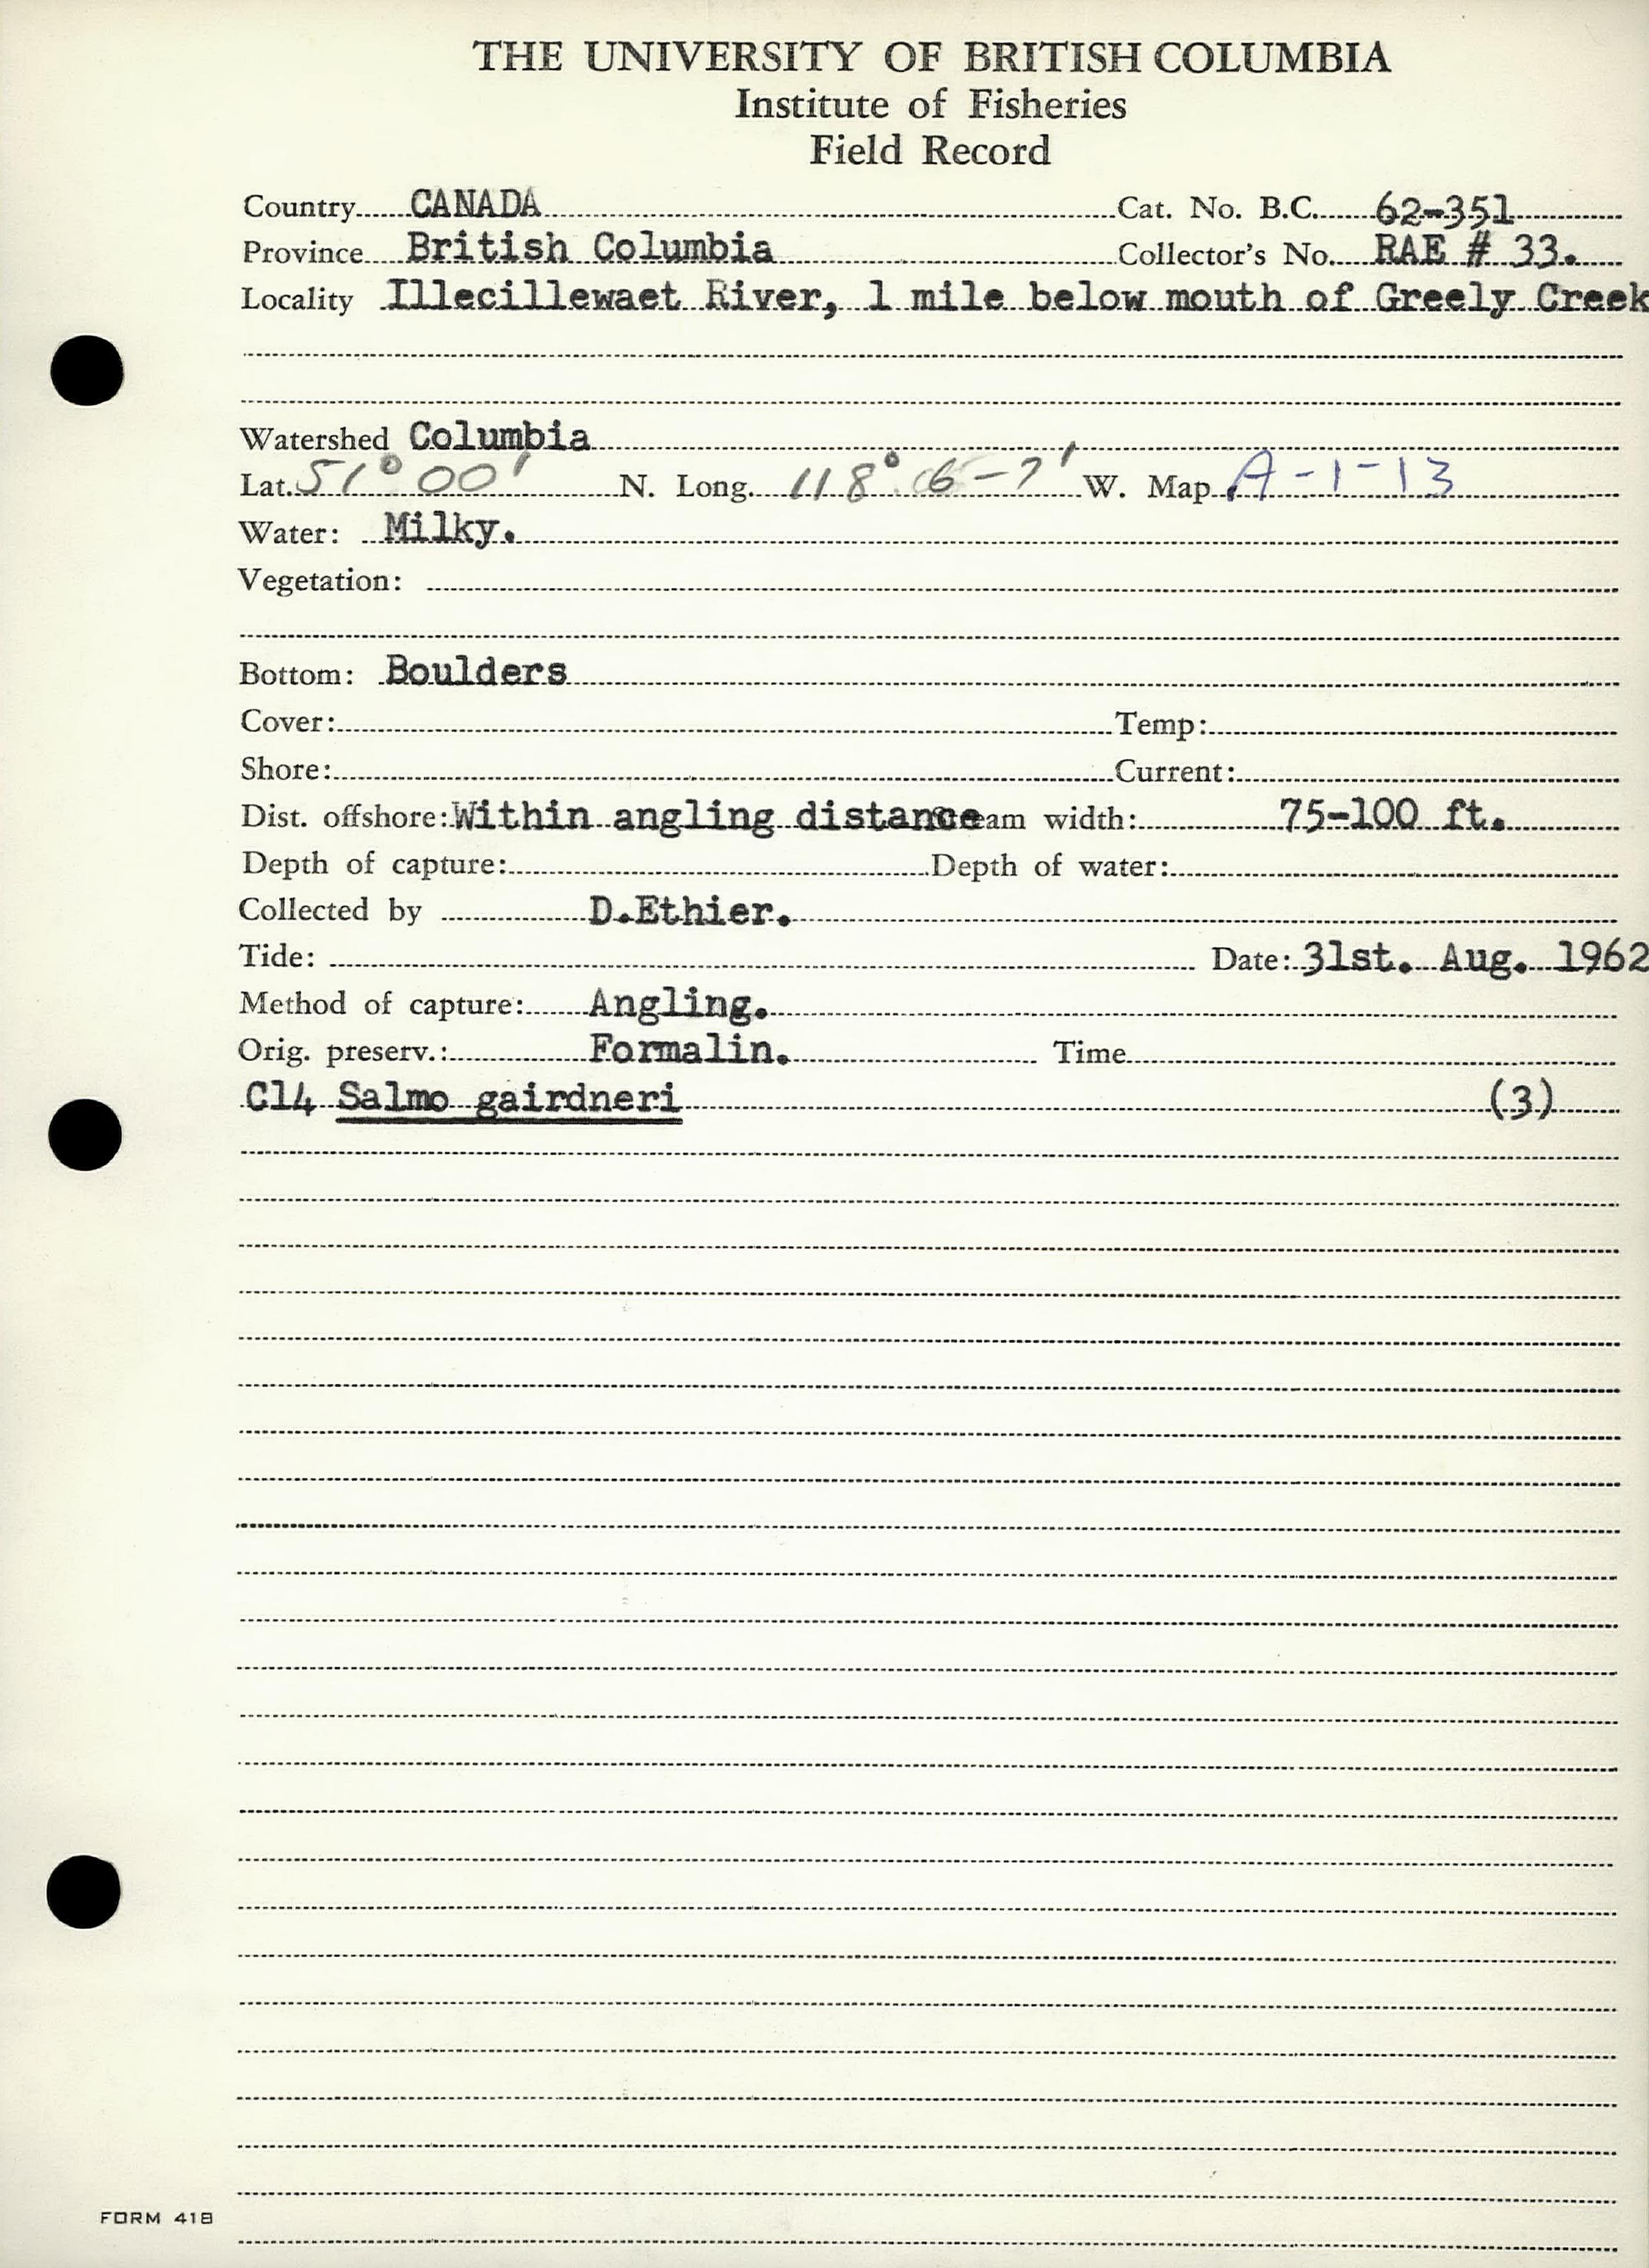 THE UNIVERSITY OF BRITISH COLUMBIA
Institute of Fisheries
Field Record
Country CANADA Cat. No. B.C. 62-351
Province British Columbia Collector's No. RAE # 33.
Locality Illecillewaet River, 1 mile below mouth of Greely Creek
Watershed Columbia
Lat. 51° 00' N. Long. 118° 6-7' W. Map A-1-13
Water: Milky.
Vegetation:
Bottom: Boulders
Cover: Temp:
Shore: Current:
Dist. offshore: Within angling distance Stream width: 75-100 ft.
Depth of capture: Depth of water:
Collected by D.Ethier.
Tide: Date: 31st. Aug. 1962
Method of capture: Angling.
Orig. preserv.: Formalin. Time
Cl4 Salmo gairdneri (3)
FORM 418